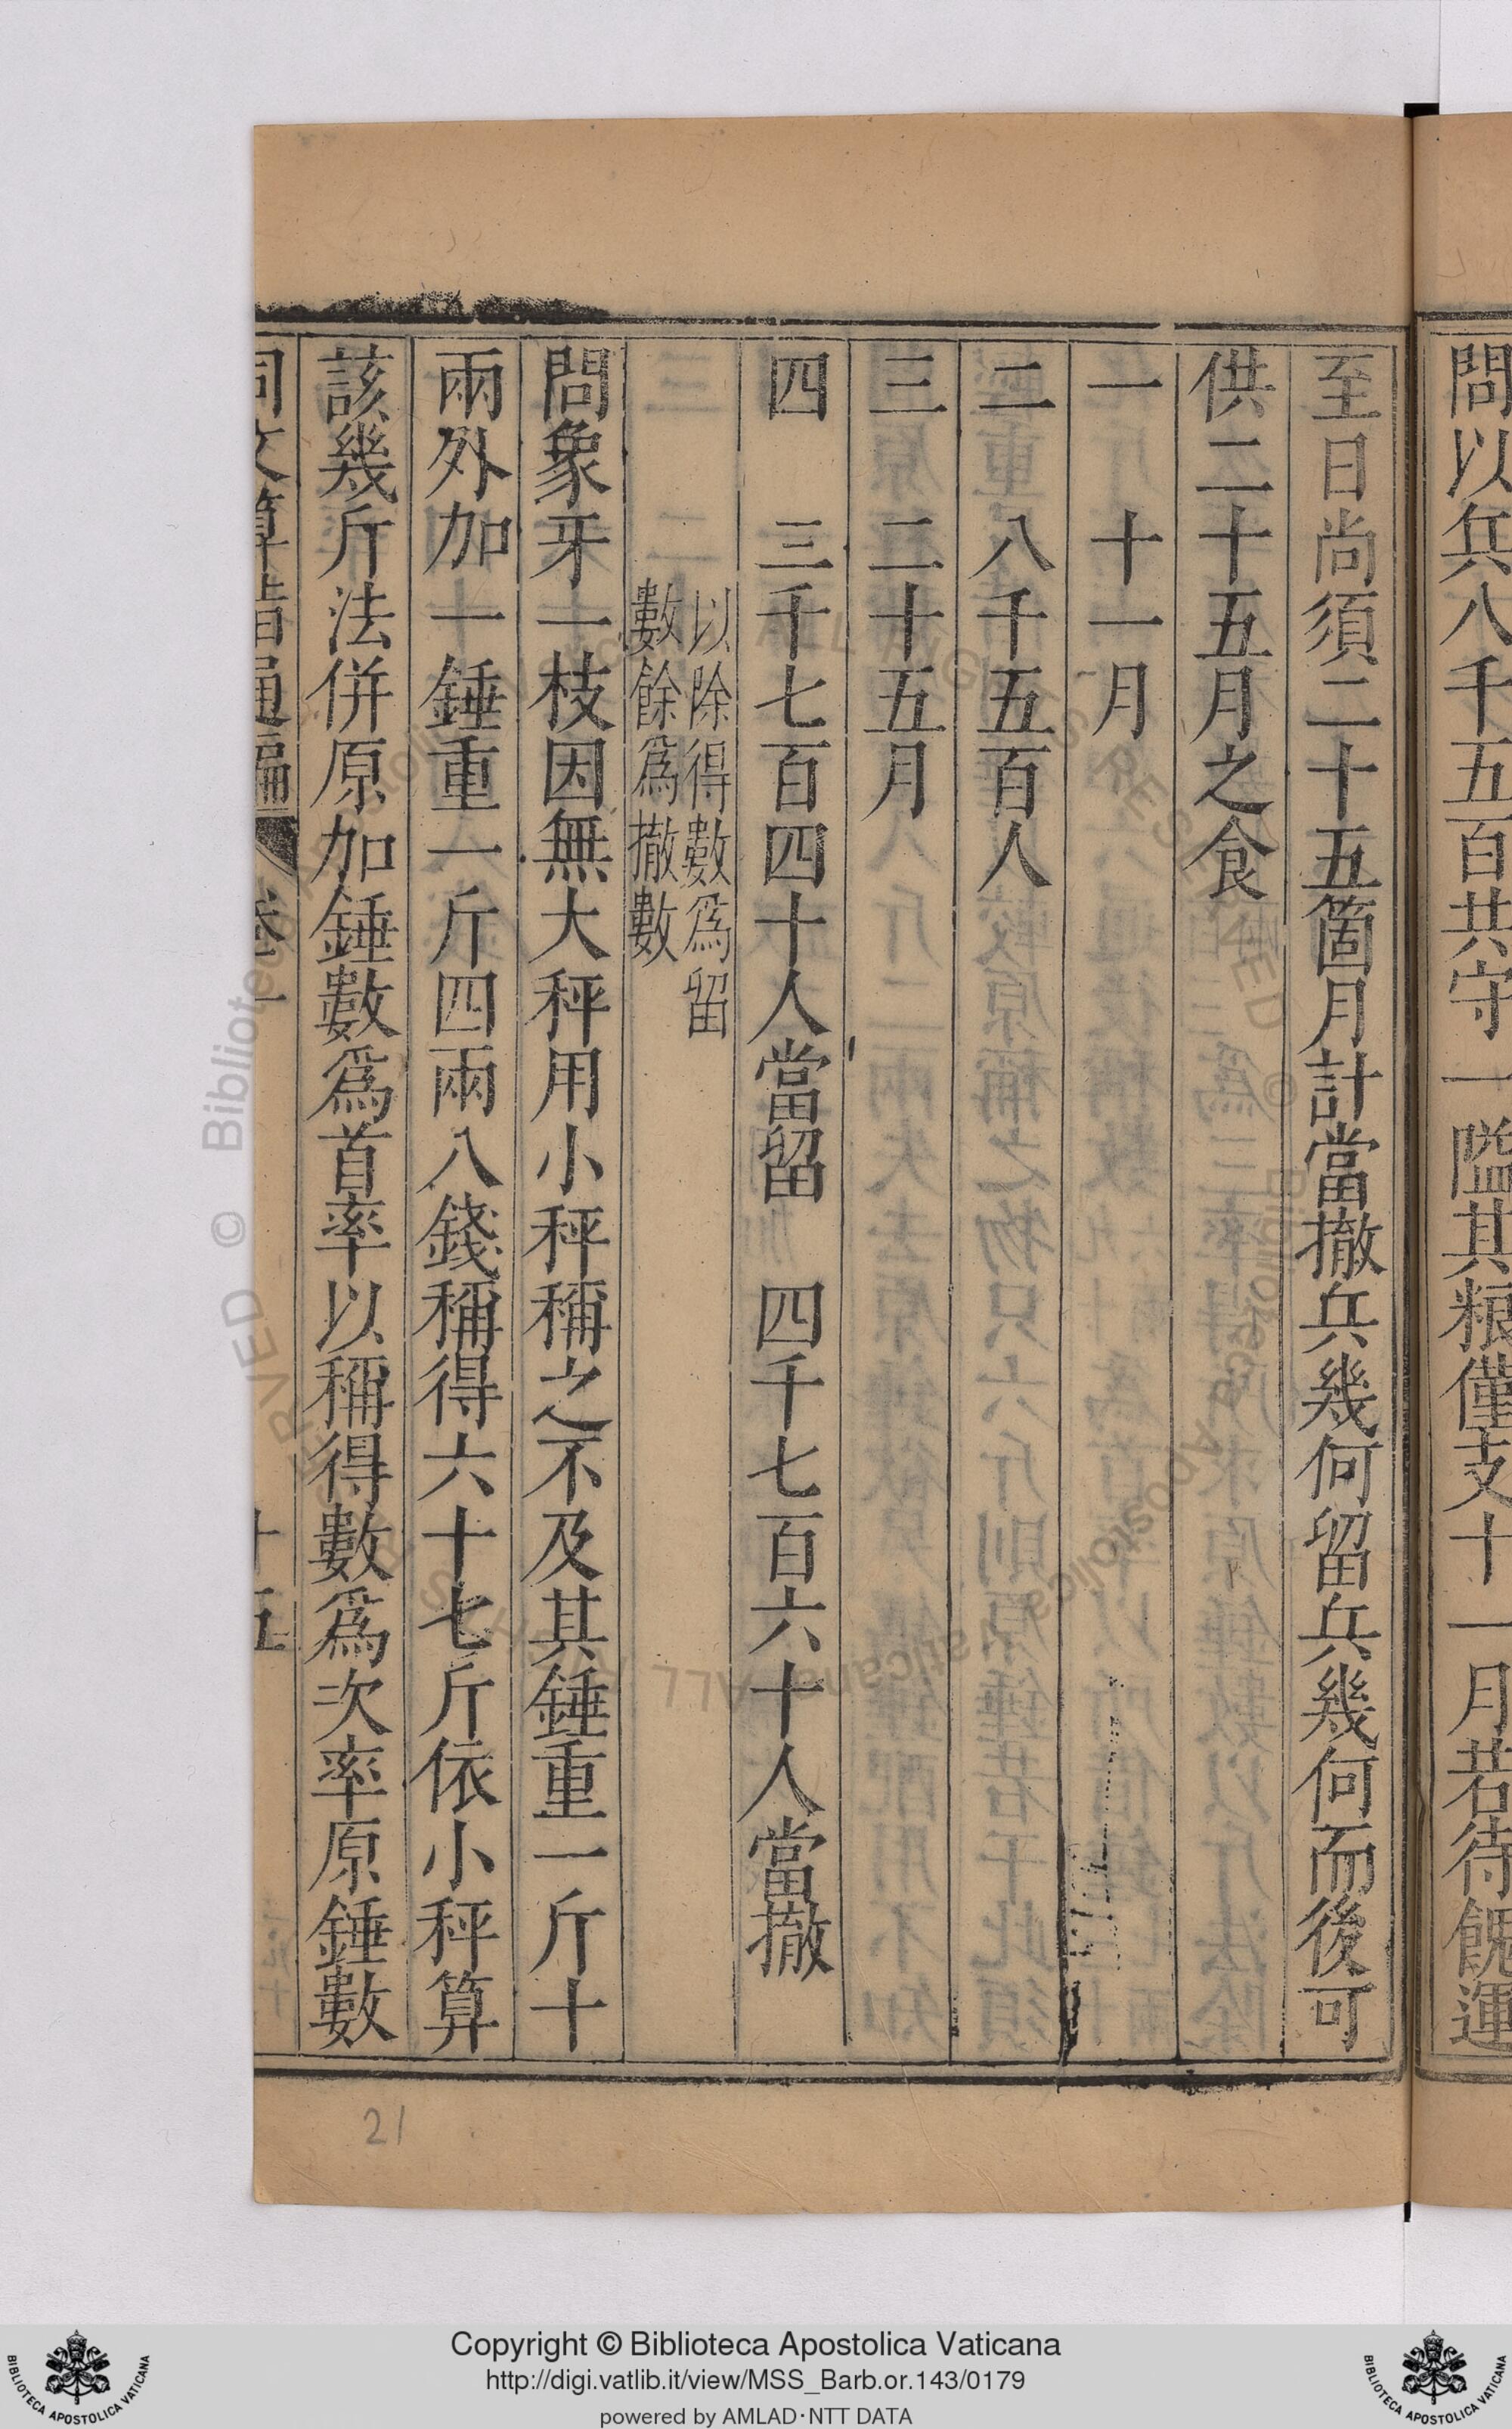 問以兵八千五百共守一隘其粮僅支十一月若待餽運
至日尚須二十五箇月計當撤兵幾何留兵幾何而後可
供二十五月之食
一　十一月
二　八千五百人
三　二十五月
四　三千七百四十人當留　四千七百六十人當撤
以除得數爲留
數餘爲撤數
問象牙一枝因無大秤用小秤稱之不及其錘重一斤十
兩外加一錘重一斤四兩八錢稱得六十七斤依小秤算
該幾斤法併原加錘數爲首率以稱得數爲次率原錘數
同文算指通編　卷一　十五
21
Copyright © Biblioteca Apostolica Vaticana
http://digi.vatlib.it/view/MSS_Barb.or.143/0179
powered by AMLAD·NTT DATA
BIBLIOTECA APOSTOLICA VATICANA
BIBLIOTECA APOSTOLICA VATICANA